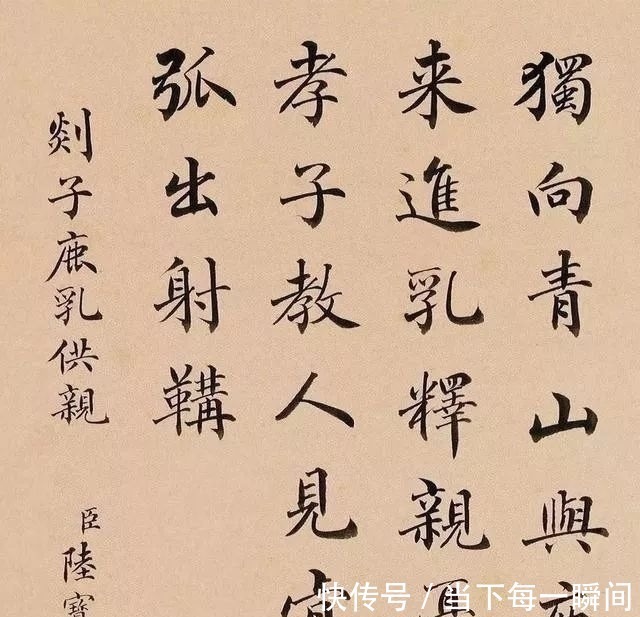 獨向青山與
来進乳釋親
孝子教人見
弧出射鞲
剡子鹿乳供親
臣陸寶
快传号/当下每一瞬间